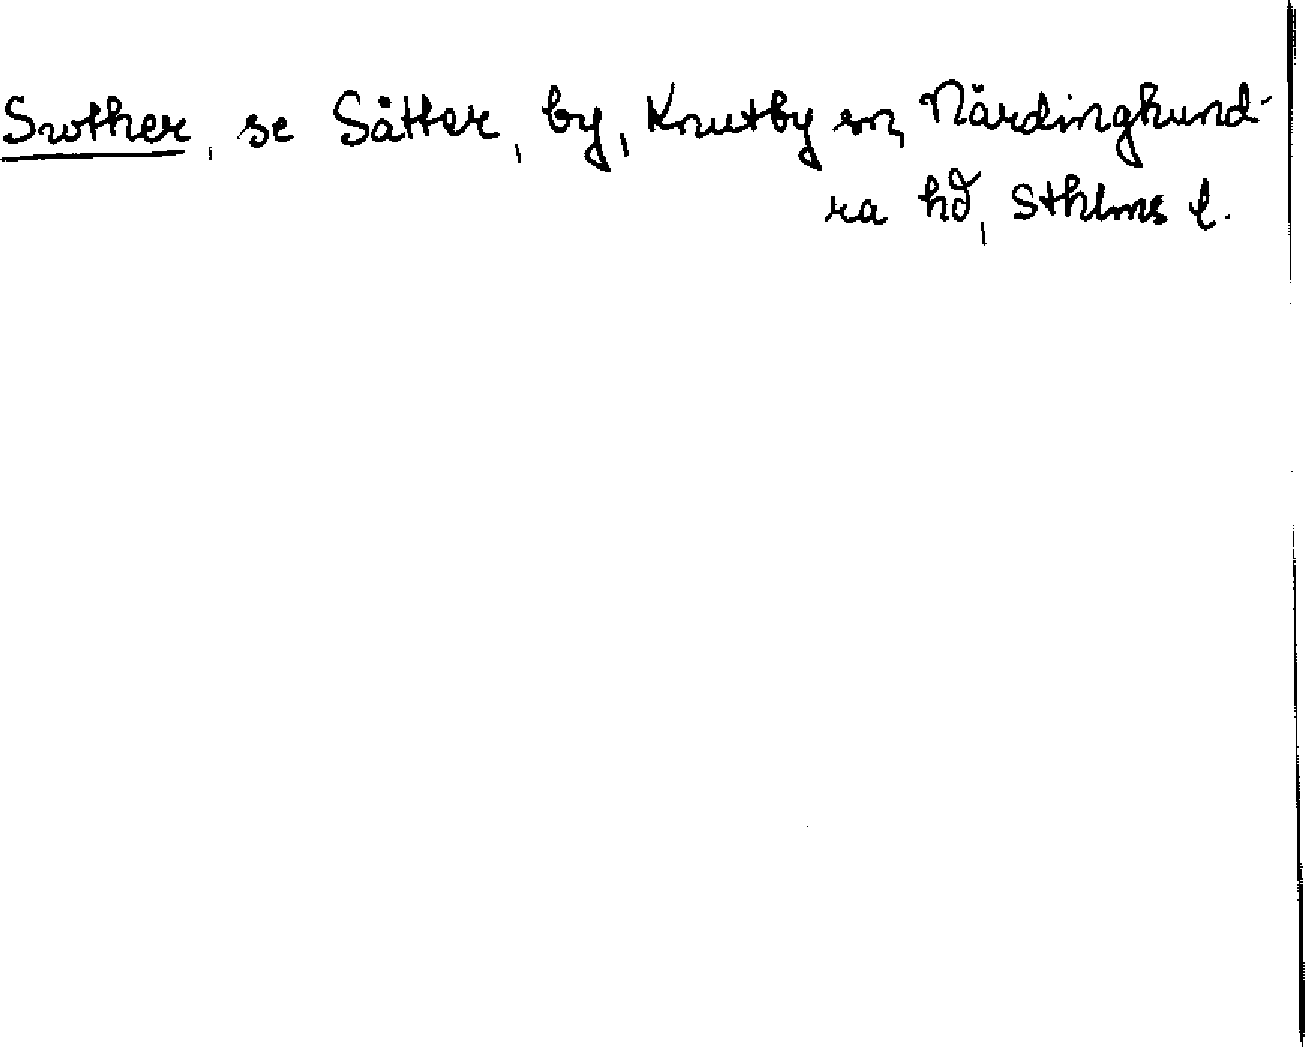 Swther, se Sätter, by, Knutby sn, Närdinghund-
ra hd, Sthlms l.